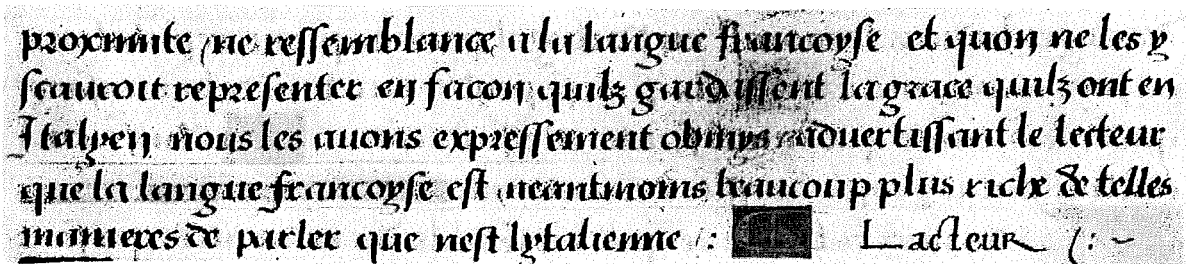 proximite ne ressemblance a la langue francoyse et quon ne les y
scauroit representer en facon quilz gardissent la grace quilz ont en
Italyen nous les auons expressement obmys aduertissant le lecteur
que la langue francoyse est neantmoins beaucoup plus riche de telles
manieres de parler que nest lytalienne /: Lacteur /: ~